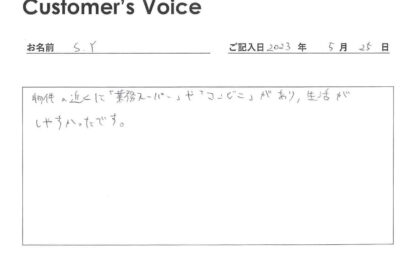 Customer's Voice
お名前 S.Y ご記入日 2023 年 5 月 25 日
物件の近くに「業務スーパー」や「コンビニ」があり,生活が
しやすかったです。